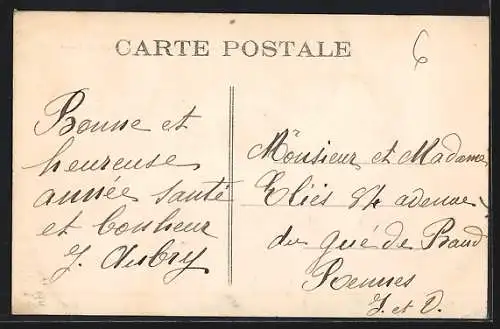 CARTE POSTALE
6
Bonne et
heureuse
année santé
et bonheur
J. Aubry
Monsieur et Madame
84 avenue
du gué de Baud
Rennes
I. et V.